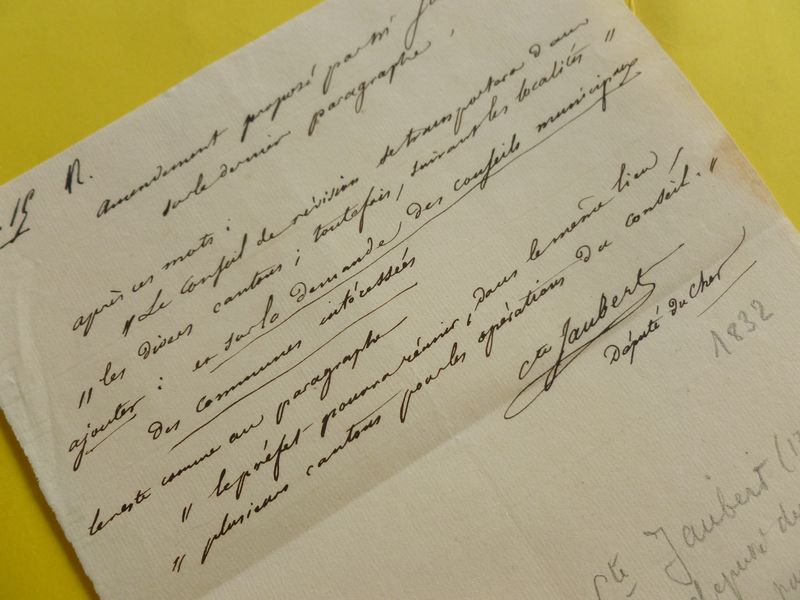 15 R.
Amendement proposé par Mr
sur le dernier paragraphe.
après ces mots :
" Le Conseil de révision se transportera dans
" les divers cantons ; toutefois, suivant les localités "
ajouter : et sur la demande des conseils municipaux
des communes intéressées
le reste comme au paragraphe
" le préfet pourra réunir, dans le même lieu,
" plusieurs cantons pour les opérations du conseil. "
Cte Jaubert
Député du Cher
1832
Cte Jaubert
député de